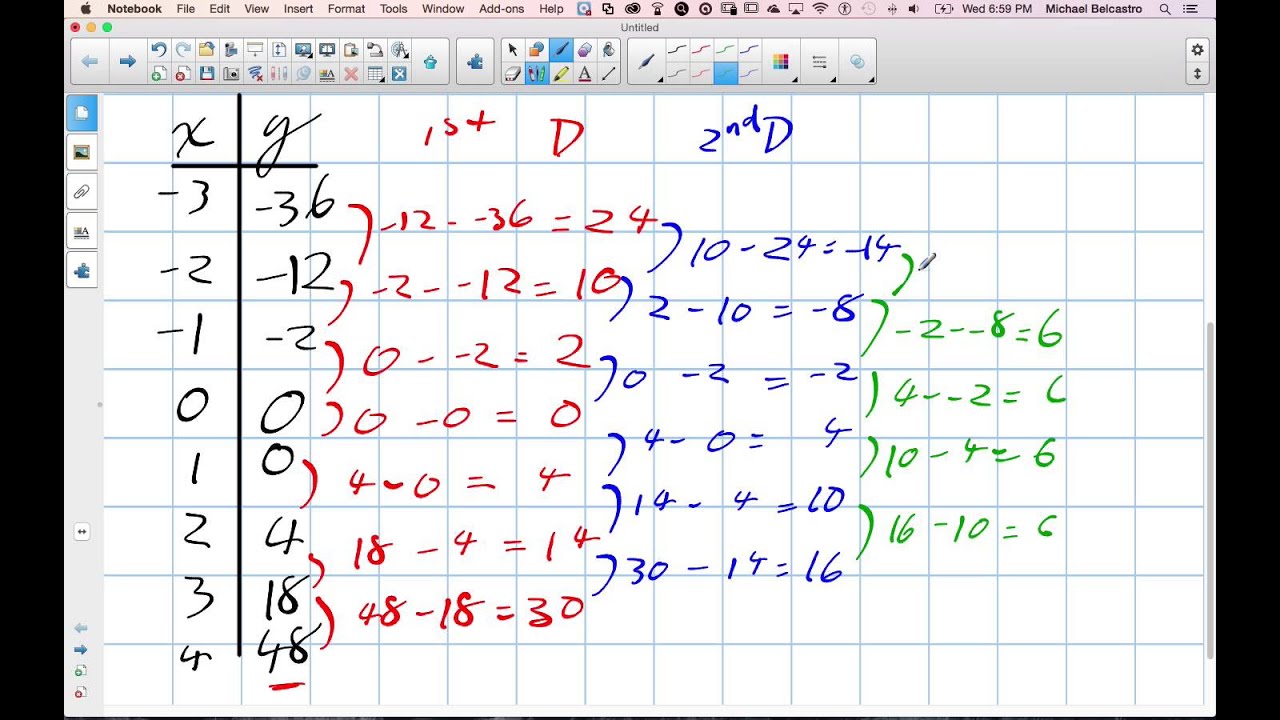 Notebook File Edit View Insert Format Tools Window Add-ons Help Wed 6:59 PM Michael Belcastro
Untitled
x y 1st D 2nd D
-3 -36
-12 - -36 = 24
10 - 24 = -14
-2 -12
-2 - -12 = 10
2 - 10 = -8
-2 - -8 = 6
-1 -2
0 - -2 = 2
0 - 2 = -2
4 - -2 = 6
0 0
0 - 0 = 0
4 - 0 = 4
10 - 4 = 6
1 0
4 - 0 = 4
14 - 4 = 10
16 - 10 = 6
2 4
18 - 4 = 14
30 - 14 = 16
3 18
48 - 18 = 30
4 48